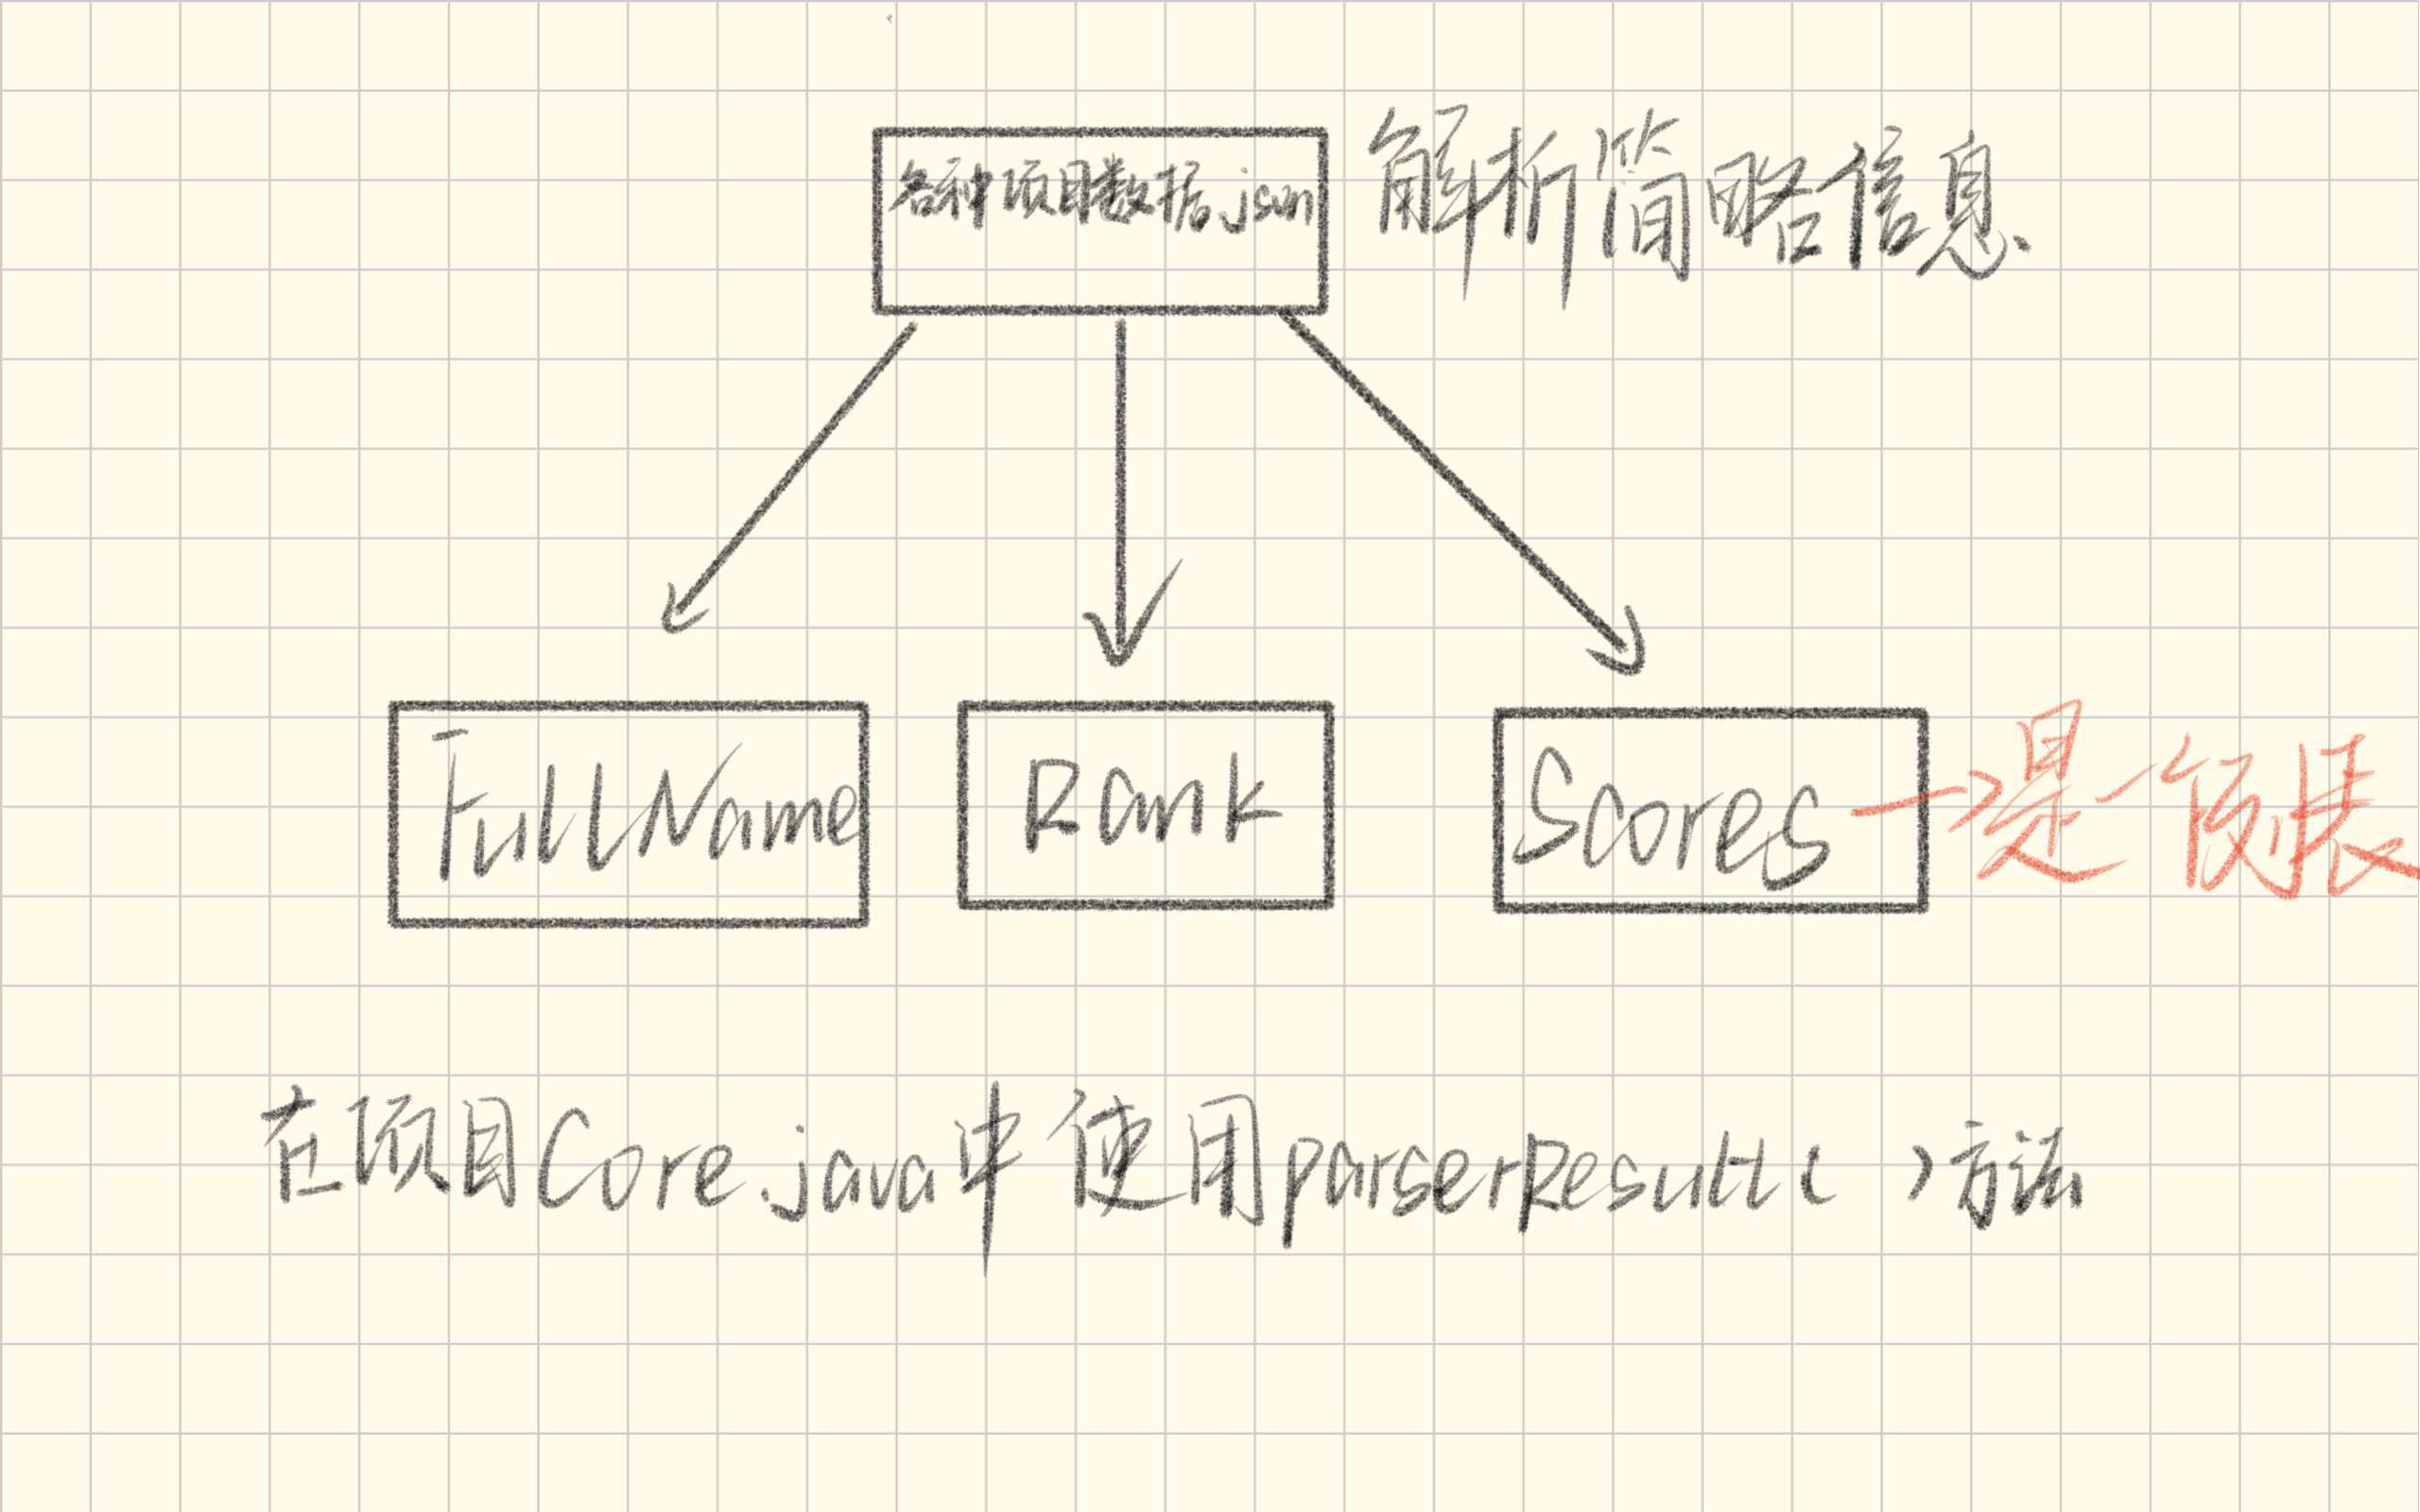 各种项目数据.json
解析简略信息
FullName
Rank
Scores
是一个列表
在项目Core.java中使用parserResult( )方法